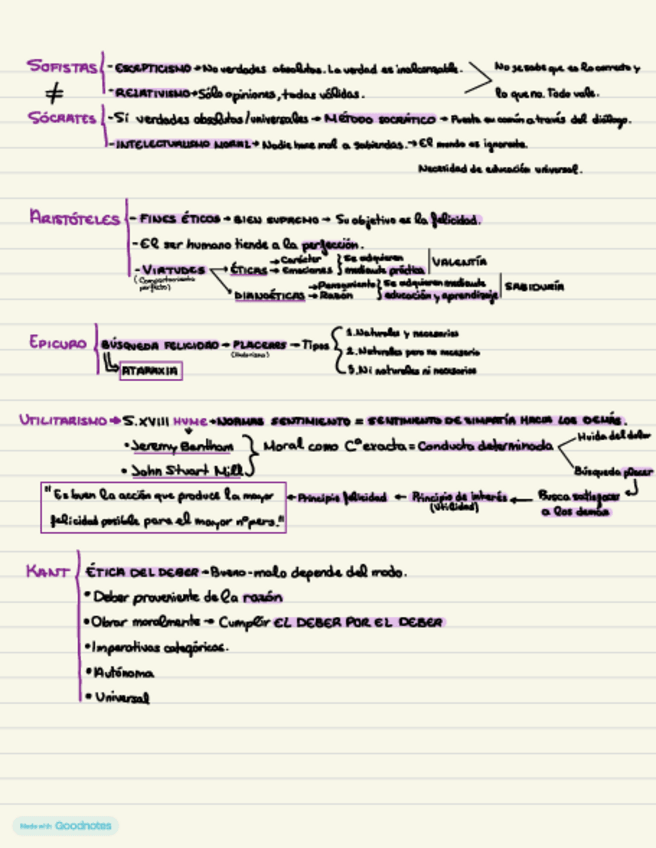 SOFISTAS - ESCEPTICISMO → No verdades absolutas. La verdad es inalcanzable. No se sabe que es lo correcto y
≠ - RELATIVISMO → Sólo opiniones, todas válidas. lo que no. Todo vale.
SÓCRATES - Sí verdades absolutas/universales → MÉTODO SOCRÁTICO → Puesta en común a través del diálogo.
- INTELECTUALISMO MORAL → Nadie hace mal a sabiendas. → El mundo es ignorante.
Necesidad de educación universal.
ARISTÓTELES - FINES ÉTICOS → BIEN SUPREMO → Su objetivo es la felicidad.
- El ser humano tiende a la perfección.
- VIRTUDES → ÉTICAS → Carácter } Se adquieren | VALENTÍA
(Comportamiento perfecto) → Emociones } mediante práctica
DIANOÉTICAS → Pensamiento } Se adquieren mediante | SABIDURÍA
→ Razón } educación y aprendizaje
EPICURO BÚSQUEDA FELICIDAD → PLACERES → Tipos { 1. Naturales y necesarios
(Hedonismo) 2. Naturales pero no necesario
ATARAXIA 3. Ni naturales ni necesarios
UTILITARISMO → S.XVIII HUME → NORMAS SENTIMIENTO = SENTIMIENTO DE SIMPATÍA HACIA LOS DEMÁS.
• Jeremy Bentham } Moral como Cª exacta = Conducta determinada < Huida del dolor
• John Stuart Mill Búsqueda placer
"Es buen la acción que produce la mayor ← Principio felicidad ← Principio de interés ← Busca satisfacer
felicidad posible para el mayor nº pers." (Utilidad) a los demás
KANT ÉTICA DEL DEBER → Bueno-malo depende del modo.
• Deber proveniente de la razón
• Obrar moralmente → Cumplir EL DEBER POR EL DEBER
• Imperativos categóricos.
• Autónoma
• Universal
Made with Goodnotes